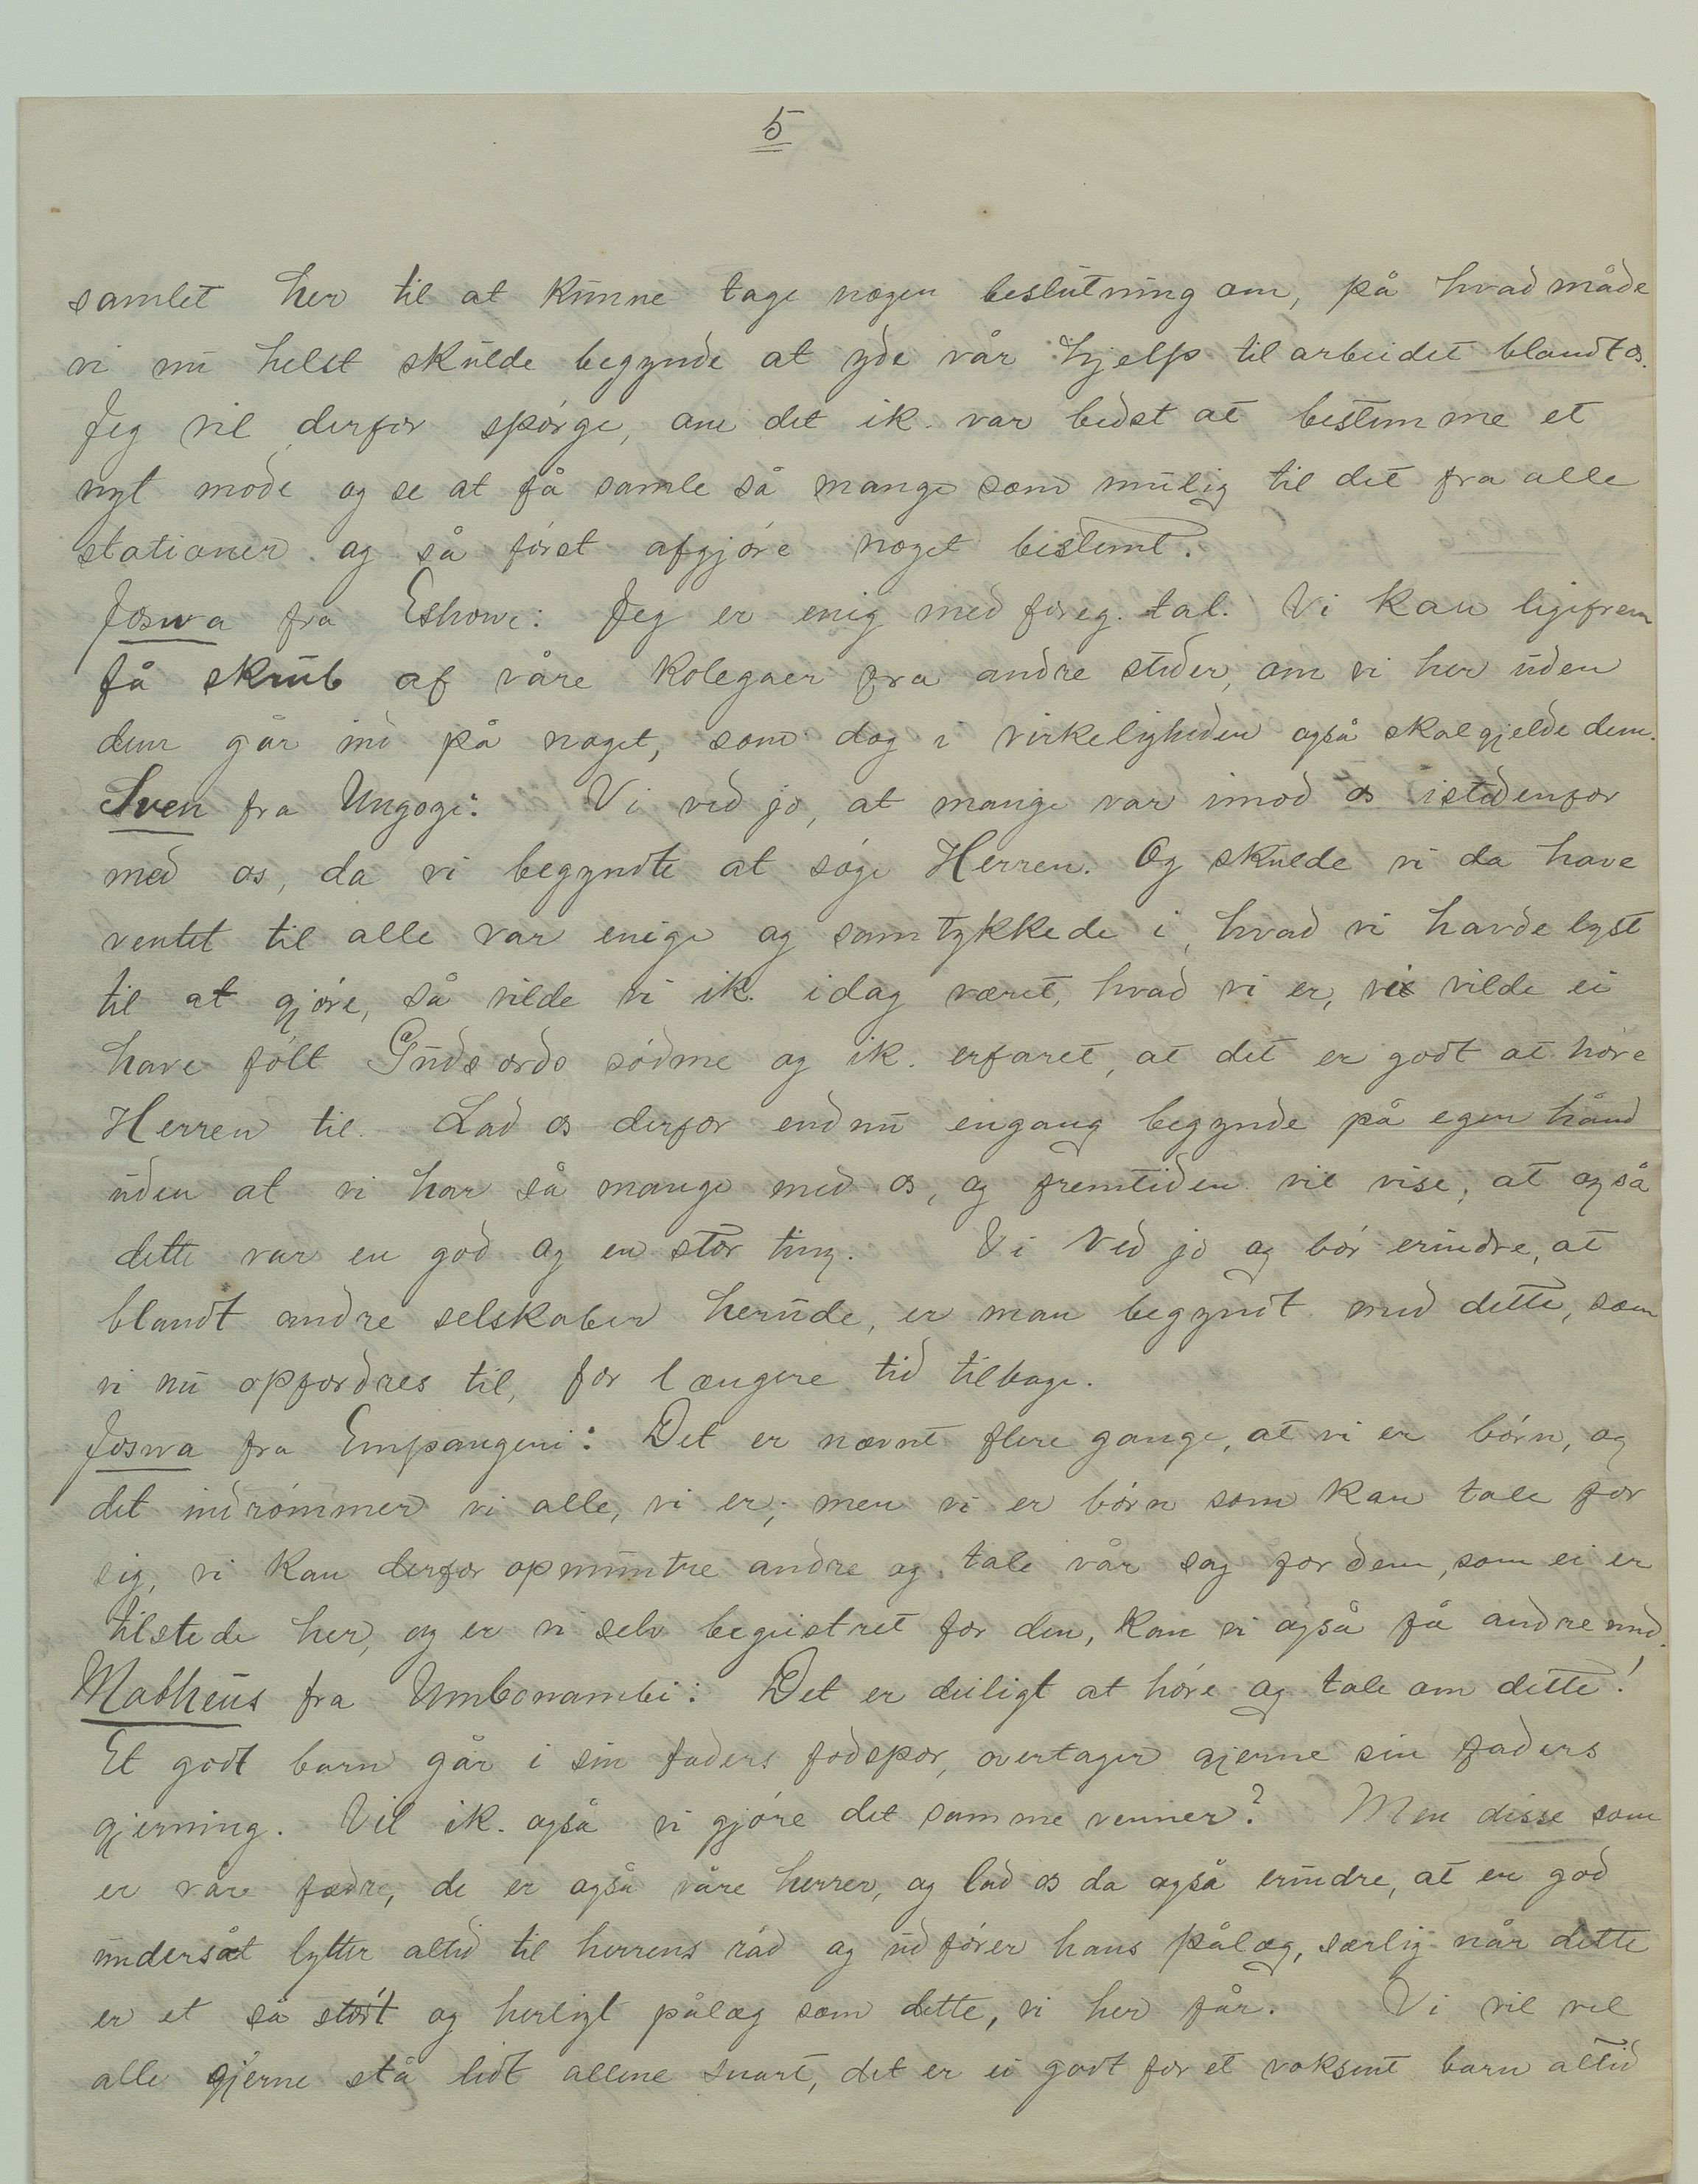 5
samlet her til at kunne tage nogen beslutning om, på hvad måde
vi nu helst skulde begynde at yde vår hjelp til arbeidet blandt os.
Jeg vil derfor spörge, om det ik. var bedst at bestemme et
nyt möde og se at få samle så mange som mulig til det fra alle
stationer og så först afgjöre noget bestemt.
Joswa fra Eshowe: Jeg er enig med foreg. tal. Vi kan ligefrem
få skrub af våre kolegaer fra andre steder, om vi her uden
dem går ind på noget, som dog i virkeligheden også skal gjelde dem.
Sven fra Ungoye: Vi ved jo, at mange var imod os istedenfor
med os, da vi begyndte at söge Herren. Og skulde vi da have
ventet til alle var enige og samtykkede i, hvad vi havde lyst
til at gjöre, så vilde vi ik. idag været, hvad vi er, vi vilde ei
have fölt Guds ords södme og ik. erfaret, at det er godt at höre
Herren til. Lad os derfor endnu engang begynde på egen hånd
uden at vi har så mange med os, og fremtiden vil vise, at også
dette var en god og en stor ting. Vi ved jo og bör erindre, at
blandt andre selskaber herude, er man begyndt med dette, som
vi nu opfordres til, for længere tid tilbage.
Joswa fra Empangeni: Det er nævnt flere gange, at vi er börn, og
det indrömmer vi alle, vi er; men vi er börn som kan tale for
sig, vi kan derfor opmuntre andre og tale vår sag for dem, som ei er
tilstede her, og er vi selv begeistret for den, kan vi også få andre med.
Matheus fra Umbonambi: Det er deiligt at höre og tale om dette!
Et godt barn går i sin faders fodspor, overtager gjerne sin faders
gjerning. Vil ik. også vi gjöre det samme venner? Men disse som
er våre fædre, de er også våre herrer, og lad os da også erindre, at en god
undersåt lytter altid til herrens råd og udförer hans pålæg, særlig når dette
er et så stort og herligt pålæg som dette, vi her får. Vi vil vel
alle gjerne stå lidt allene snart, det er ei godt for et voksent barn altid